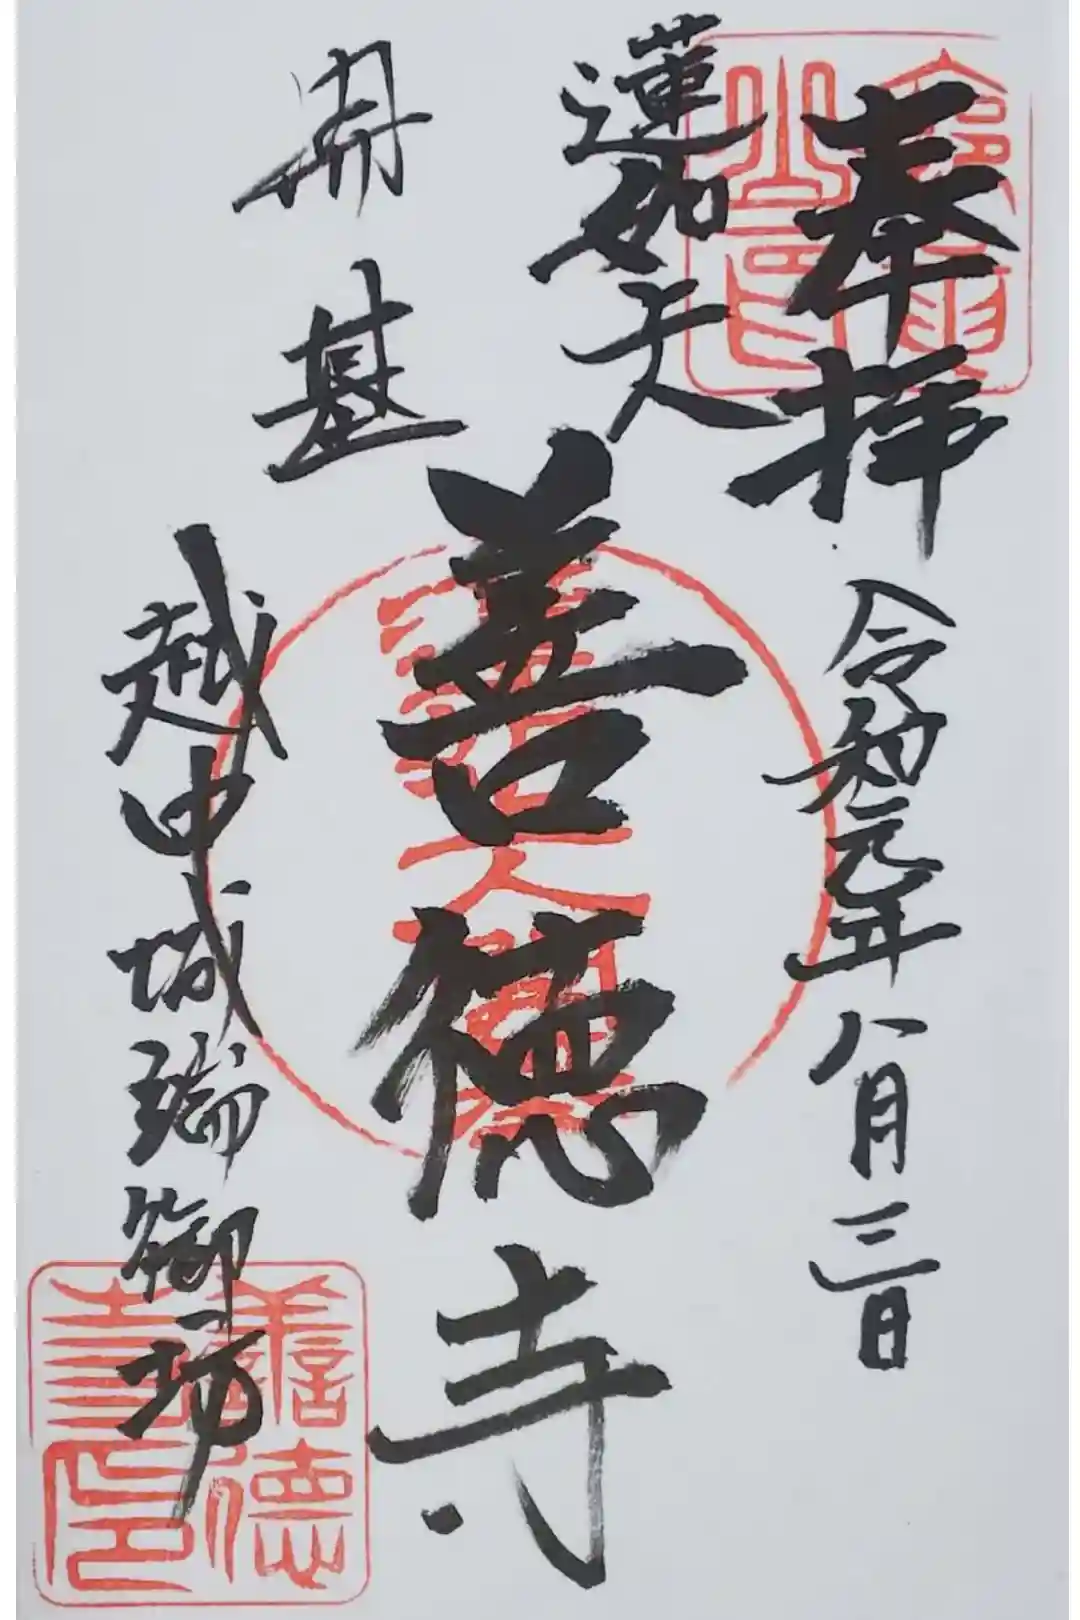 奉拝
令和元年八月三日
蓮如
開基
善徳寺
越中城端御坊
善徳寺印